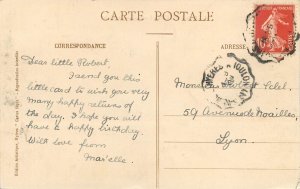 CARTE POSTALE
CORRESPONDANCE
ADRESSE
Dear little Robert,
I send you this
little card to wish you very
many happy returns
of the day. I hope you will
have a happy birthday.
With love from
Mar'elle.
Monsieur Robert
59 Avenue de Noailles
Lyon